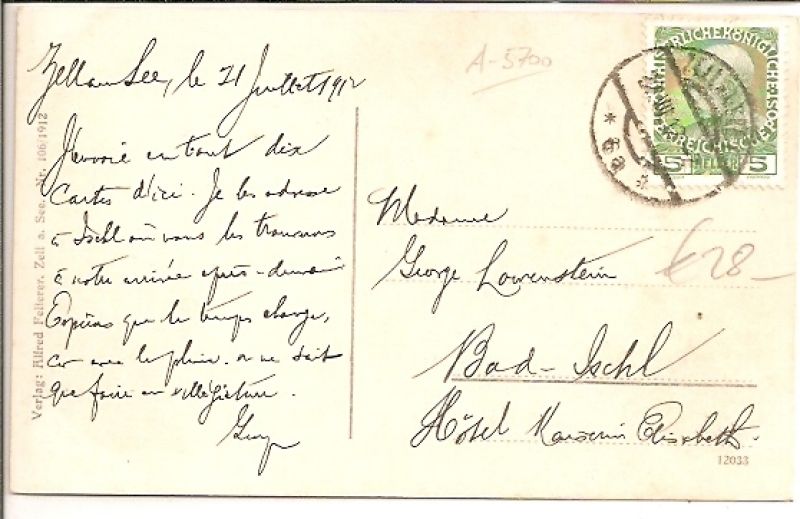 Zell am See, le 21 Juillet 1912
J'envoie en tout dix
Cartes d'ici. Je les adresse
à Ischl où nous les trouverons
à notre arrivée après-demain
Espérons que le temps change,
car avec la pluie on ne sait
que faire en villégiature.
George
A-5700
KAISERLICHEKÖNIGLICHEÖSTERREICHISCHE
5 HELLER 5
ZELL AM SEE
* 6a *
Madame
George Lowenstein
€ 28-
Bad-Ischl
Hôtel Kaiserin Elisabeth.
12033
Verlag: Alfred Feiterer, Zell a. See. Nr. 106/1912